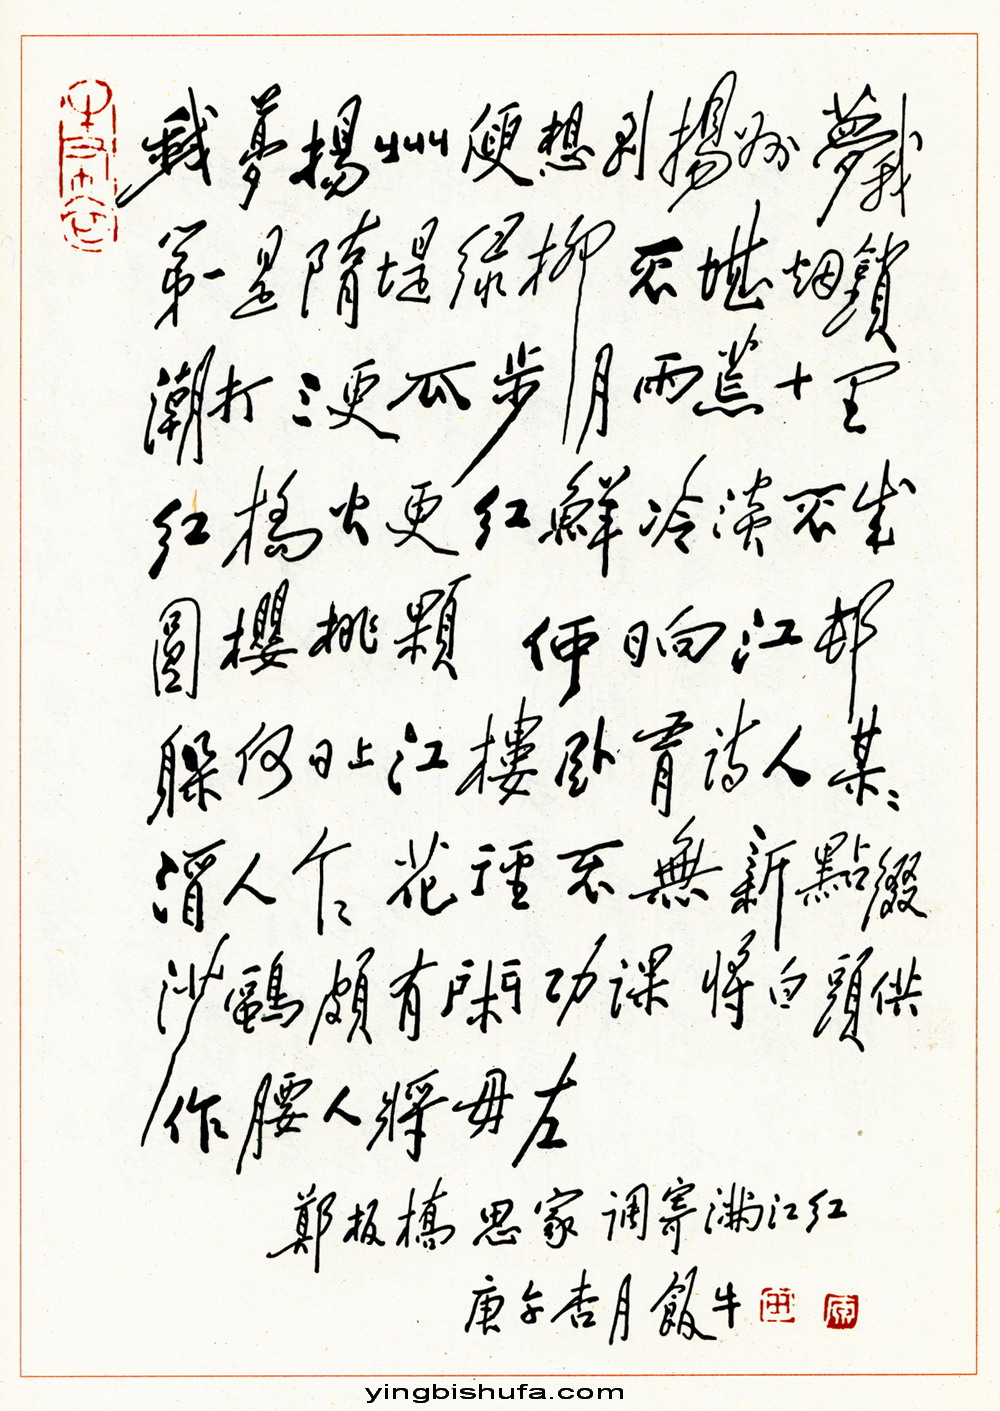 我夢揚州便想到揚州夢我
第一是隋堤绿柳不堪烟鎖
潮打三更瓜步月雨荒十里
红橋火更红鮮冷淡不成
圓櫻桃顆 何日向江邨
躲何日上江樓卧有詩人某〻
酒人个〻花徑不無新點綴
沙鷗頗有閑功課將白頭供
作腰人將毋左
鄭板橋思家调寄滿江红
庚午杏月飯牛
yingbishufa.com